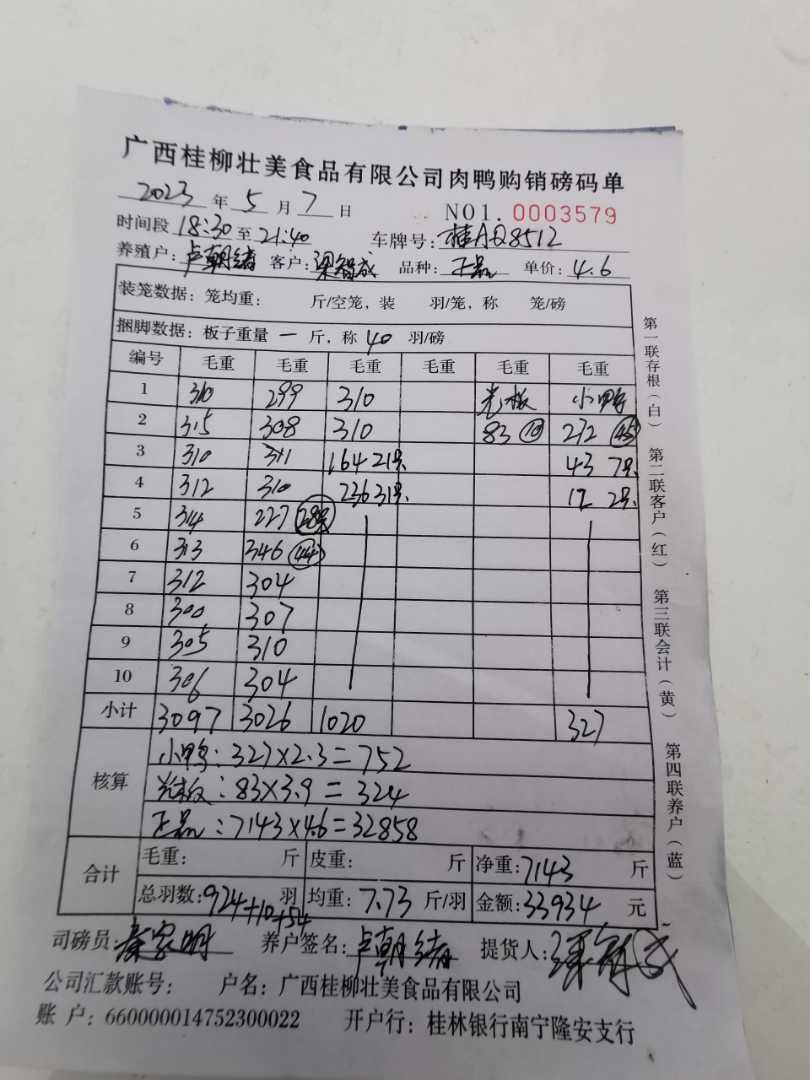 广西桂柳壮美食品有限公司肉鸭购销磅码单
2023 年 5 月 7 日 NO1. 0003579
时间段 18:30 至 21:40 车牌号: 桂AQ8512
养殖户: 卢朝绪 客户: 梁智成 品种: 正品 单价: 4.6
装笼数据: 笼均重: 斤/空笼, 装 羽/笼, 称 笼/磅
捆脚数据: 板子重量 一 斤, 称 40 羽/磅
编号 毛重 毛重 毛重 毛重 毛重 毛重
1 310 299 310 光板 小鸭
2 315 308 310 83 10 272 45
3 310 311 164 21只 43 7只
4 312 310 236 31只 12 2只
5 314 227 28只
6 313 346 44
7 312 304
8 300 307
9 305 310
10 306 304
小计 3097 3026 1020 327
核算
小鸭: 327×2.3=752
光板: 83×3.9=324
正品: 7143×4.6=32858
合计
毛重: 斤 皮重: 斤 净重: 7143 斤
总羽数: 924+10+54 羽 均重: 7.73 斤/羽 金额: 33934 元
司磅员: 秦家明 养户签名: 卢朝绪 提货人: 梁智成
公司汇款账号: 户名: 广西桂柳壮美食品有限公司
账 户: 660000014752300022 开户行: 桂林银行南宁隆安支行
第一联存根(白) 第二联客户(红) 第三联会计(黄) 第四联养户(蓝)